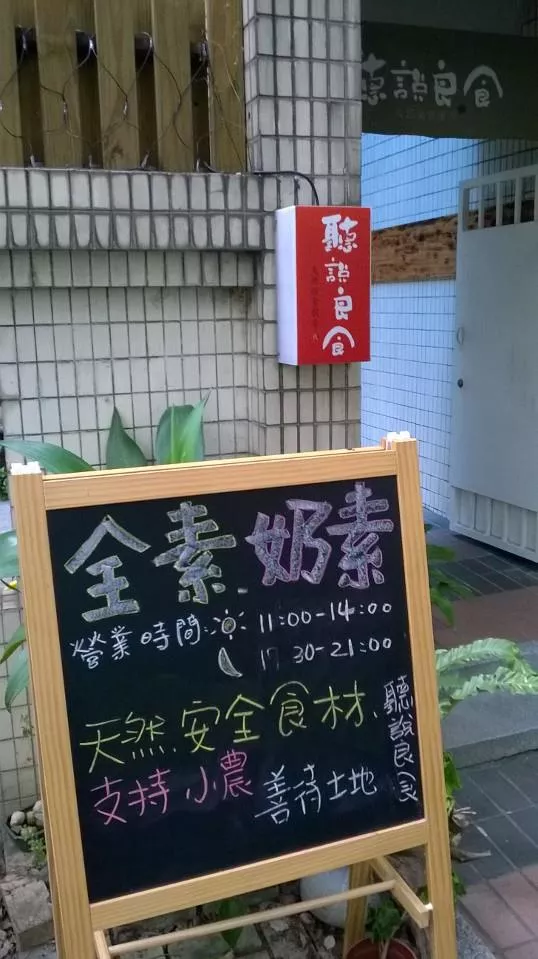 聽說良食
聽說良食
全素.奶素
營業時間: 11:00-14:00
17 30-21:00
天然.安全食材、
支持小農 善待土地
聽說良食